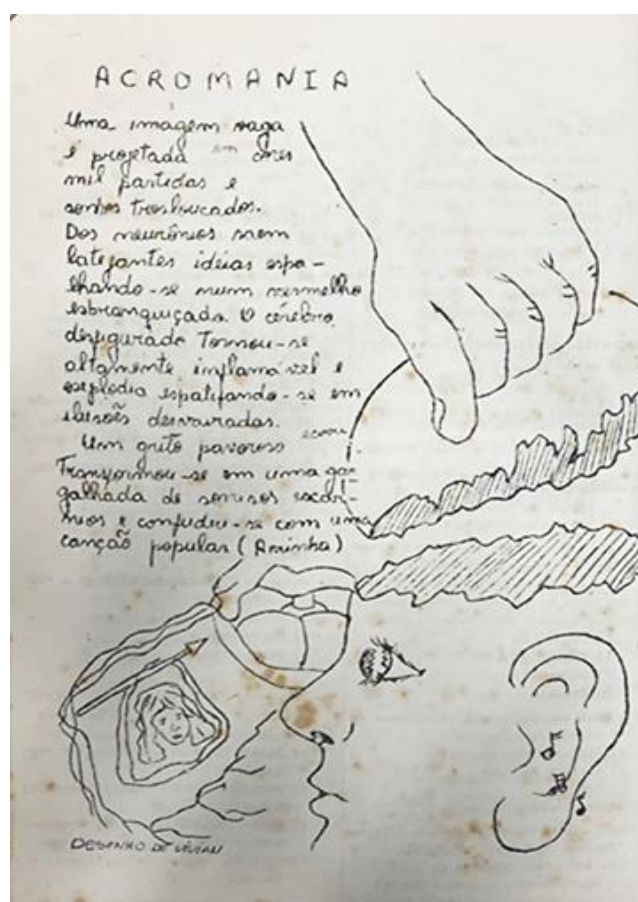 ACROMANIA
Uma imagem vaga
é projetada em cores
mil partidas e
sonhos tresloucados.
Dos neurônios saem
latejantes idéias espa-
lhando-se num vermelho
esbranquiçado O cérebro
desfigurado Tornou-se
altamente inflamável e
explodiu espatifando-se em
ilusões desvairadas.
Um grito pavoroso ecoou
Transformou-se em uma ga-
galhada de sorrisos escár-
nios e confudiu-se com uma
canção popular (Aninha)
DESENHO DE VIVIAN